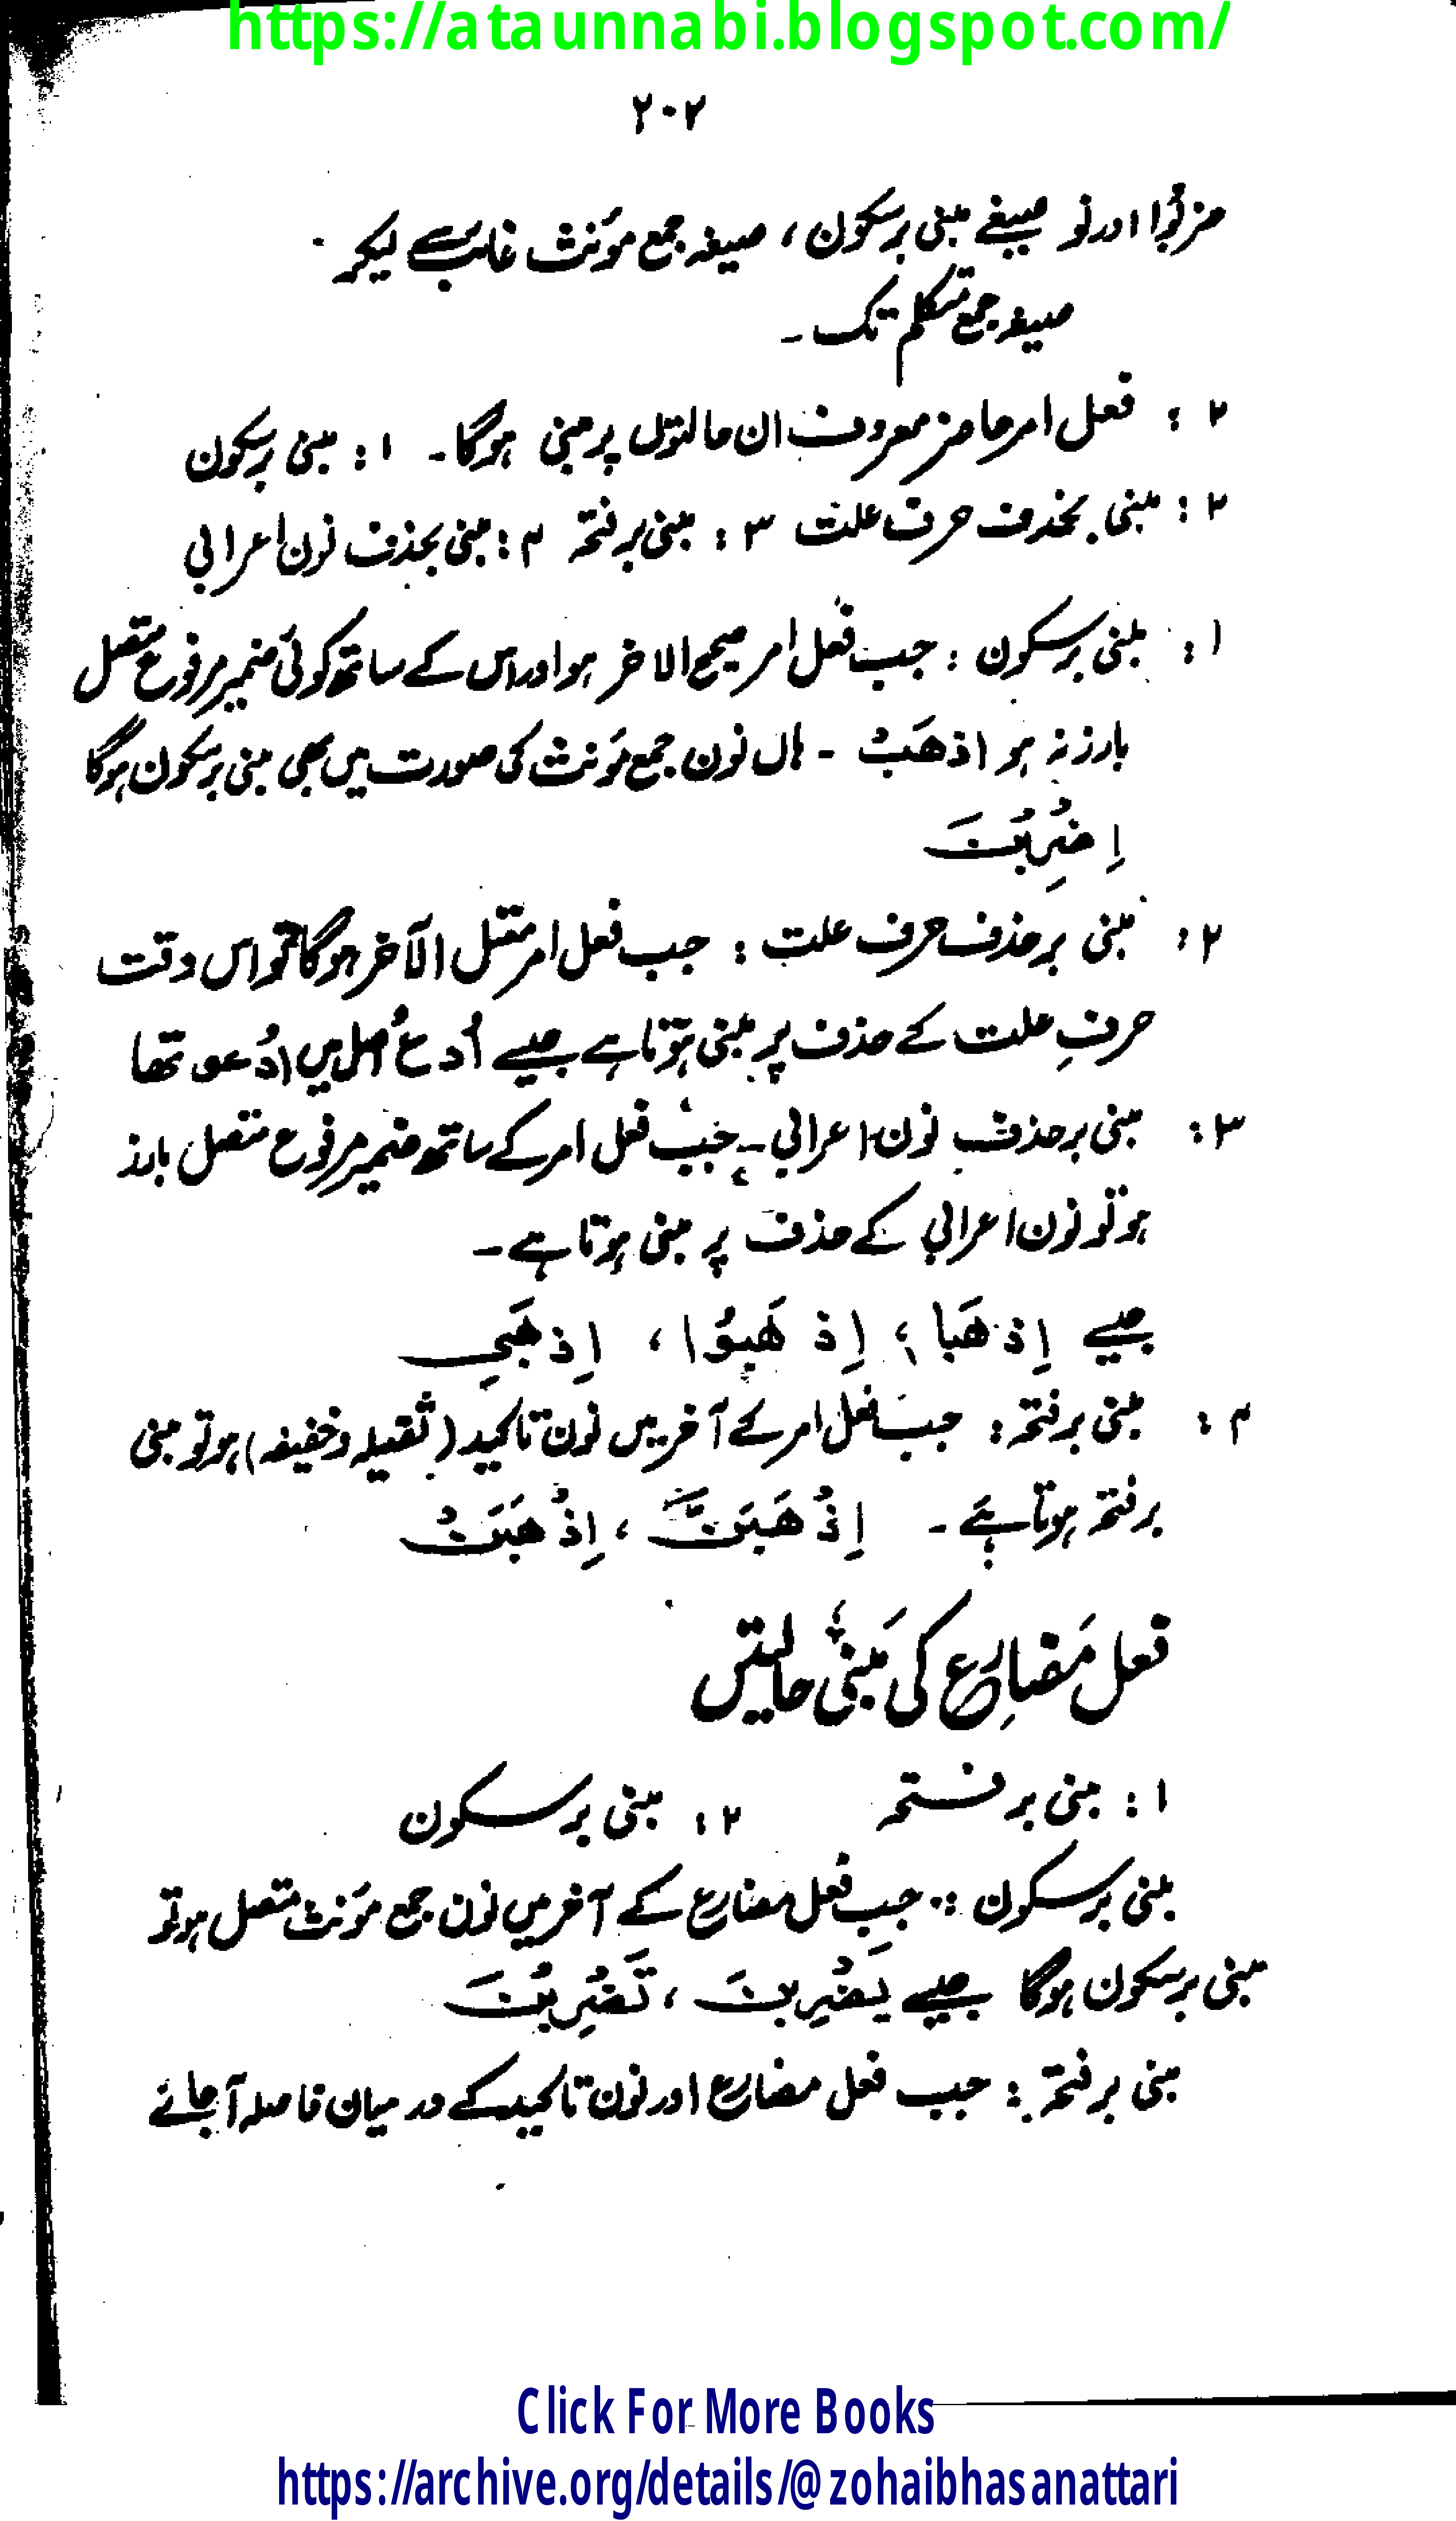 https://ataunnabi.blogspot.com/
۲۰۲
ضربُوا اور نو صیغے مبنی برسکون، صیغہ جمع مؤنث غائب سے لیکر
صیغہ جمع متکلم تک ۔
۲ : فعل امر حاضر معروف ان حالتوں پر مبنی ہوگا۔ ۱: مبنی برسکون
۲: مبنی بحذف حرف علت ۳: مبنی برفتحہ ۴: مبنی بحذف نون اعرابی
۱: مبنی برسکون : جب فعل امر صیحح الاخر ہو اور اس کے ساتھ کوئی ضمیر مرفوع متصل
بارز نہ ہو اذھَبْ ۔ ہاں نون جمع مؤنث کی صورت میں بھی مبنی برسکون ہوگا
اِضْرِبْنَ
۲: مبنی برحذف حرف علت : جب فعل امر معتل الآخر ہوگا تو اس وقت
حرفِ علت کے حذف پر مبنی ہوتا ہے جیسے اُدعُ اصل میں اُدْعو تھا
۳: مبنی برحذف نون اعرابی ۔ جب فعل امر کے ساتھ ضمیر مرفوع متصل بارز
ہو تو نون اعرابی کے حذف پر مبنی ہوتا ہے ۔
جیسے اِذھَبا ، اِذھَبوُا ، اِذھَبِی
۴: مبنی برفتحہ : جب فعل امر کے آخر میں نون تاکید (ثقیلہ و خفیفہ) ہو تو مبنی
برفتحہ ہوتا ہے ۔ اِذْھَبَنَّ ، اِذْھَبَنْ
فعل مَضارِع کی مَبنی حالتیں
۱: مبنی برفتحہ ۲: مبنی برسکون
مبنی برسکون : جب فعل مضارع کے آخر میں نون جمع مؤنث متصل ہو تو
مبنی برسکون ہوگا جیسے یَضْرِبنَ ، تَضْرِبْنَ
مبنی برفتحہ : جب فعل مضارع اور نون تاکید کے درمیان فاصلہ آجائے
Click For More Books
https://archive.org/details/@zohaibhasanattari